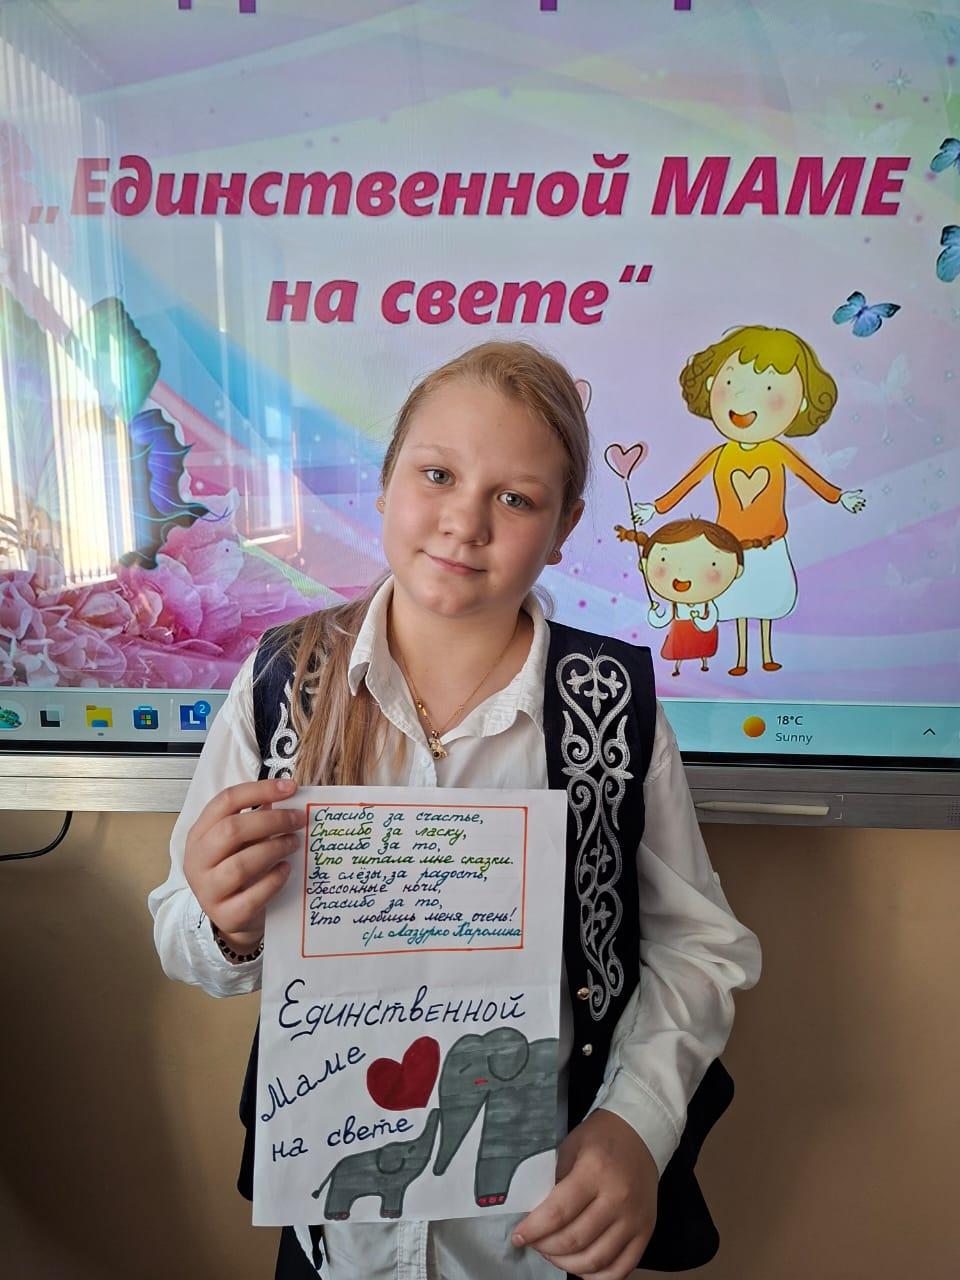 „Единственной МАМЕ
на свете“
2
18°C
Sunny
Спасибо за счастье,
Спасибо за ласку,
Спасибо за то,
Что читала мне сказки.
За слёзы, за радость,
Бессонные ночи,
Спасибо за то,
Что любишь меня очень!
с/л Лазурко Каролина
Единственной
Маме
на свете